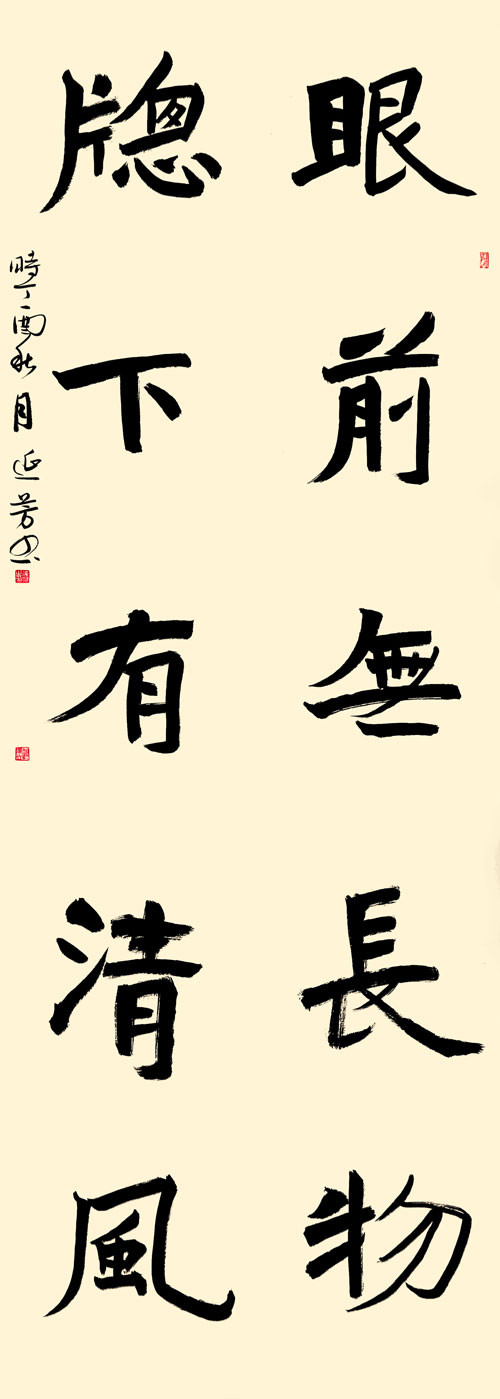 眼前無長物
牕下有清風
時丁酉秋月延芳书